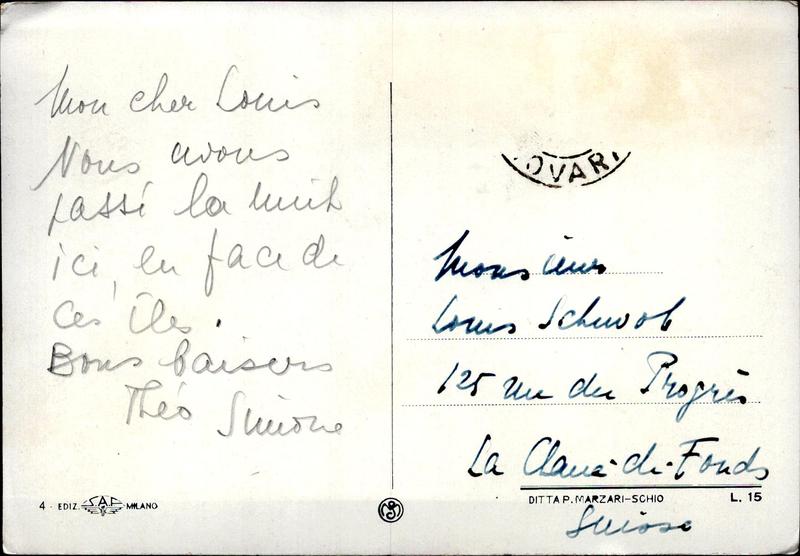 Mon cher Louis
Nous avons
passé la nuit
ici, en face de
ces îles.
Bons baisers
Théo Simone
OVARI
Monsieur
Louis Schwob
125 rue du Progrès
La Chaux-de-Fonds
Suisse
4 - EDIZ. SAF MILANO
DITTA P. MARZARI-SCHIO
L. 15